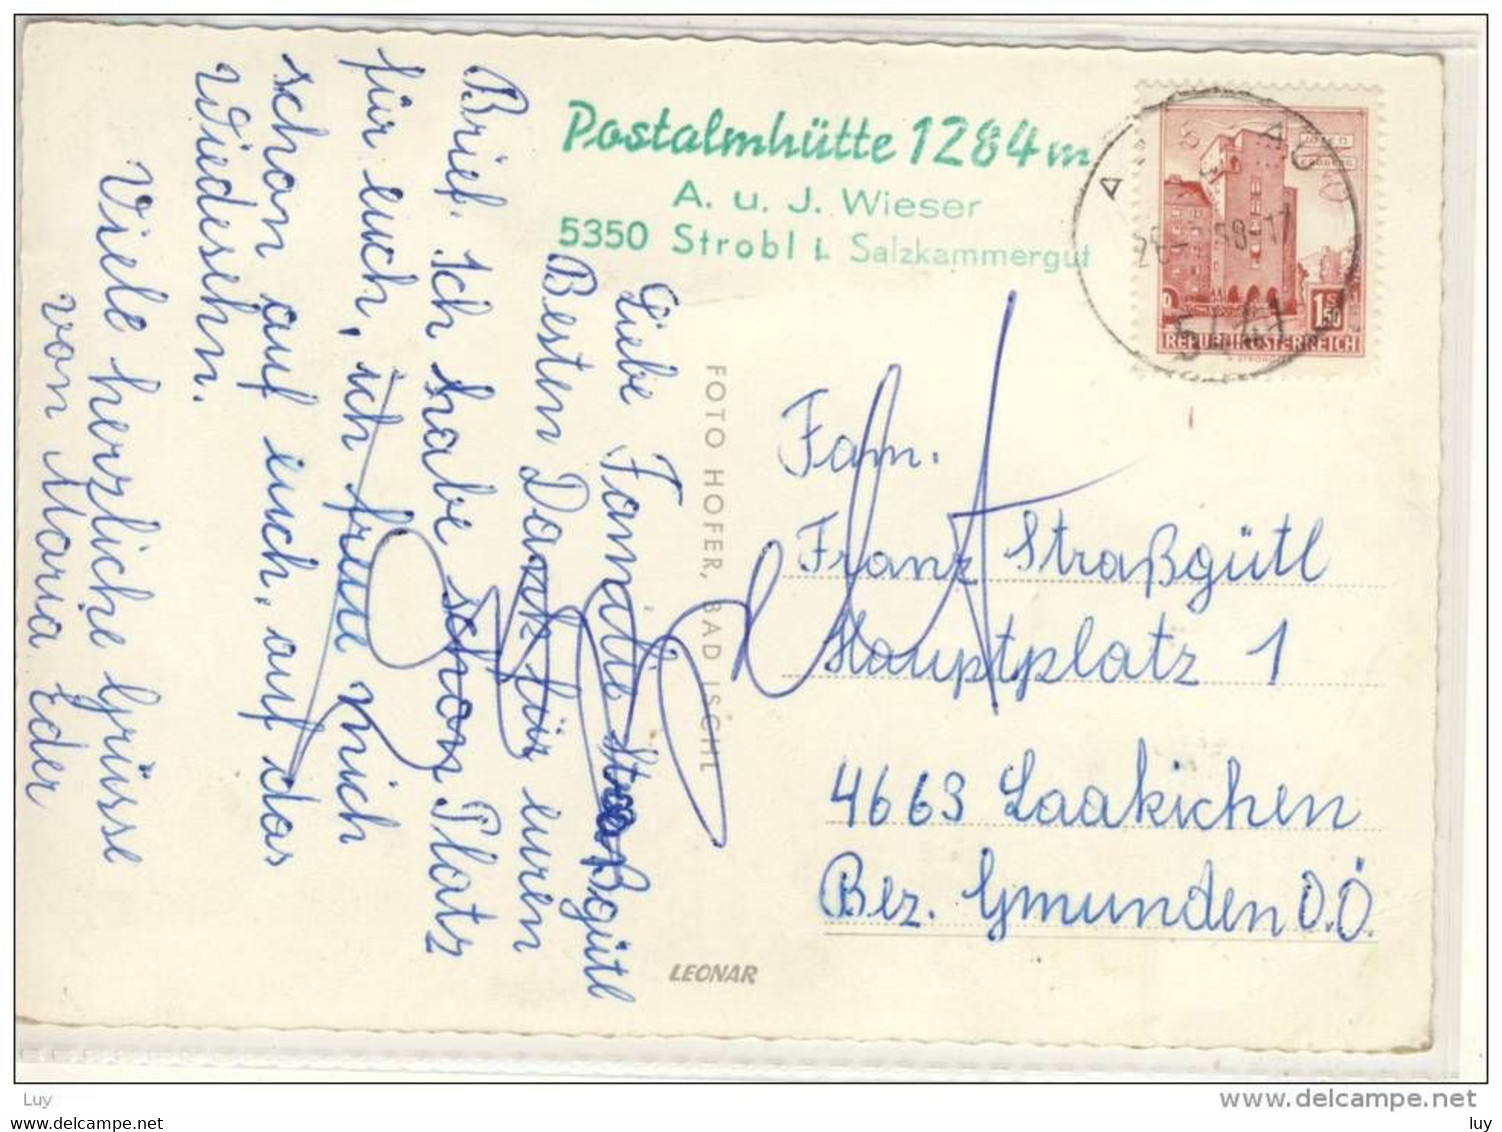 Postalmhütte 1284 m
A. u. J. Wieser
5350 Strobl i. Salzkammergut
Liebe Familie Straßgütl
Besten Dank für euren
Brief. Ich habe schon Platz
für euch, ich freue mich
schon auf euch, auf das
Wiedesehn.
Viele herzliche Grüsse
von Maria Eder
FOTO HOFER, BAD ISCHL
LEONAR
1.50
REPUBLIK ÖSTERREICH
Fam.
Franz Straßgütl
Hauptplatz 1
4663 Laakichen
Bez. Gmunden O.Ö.
Luy
delcampe.net
luy